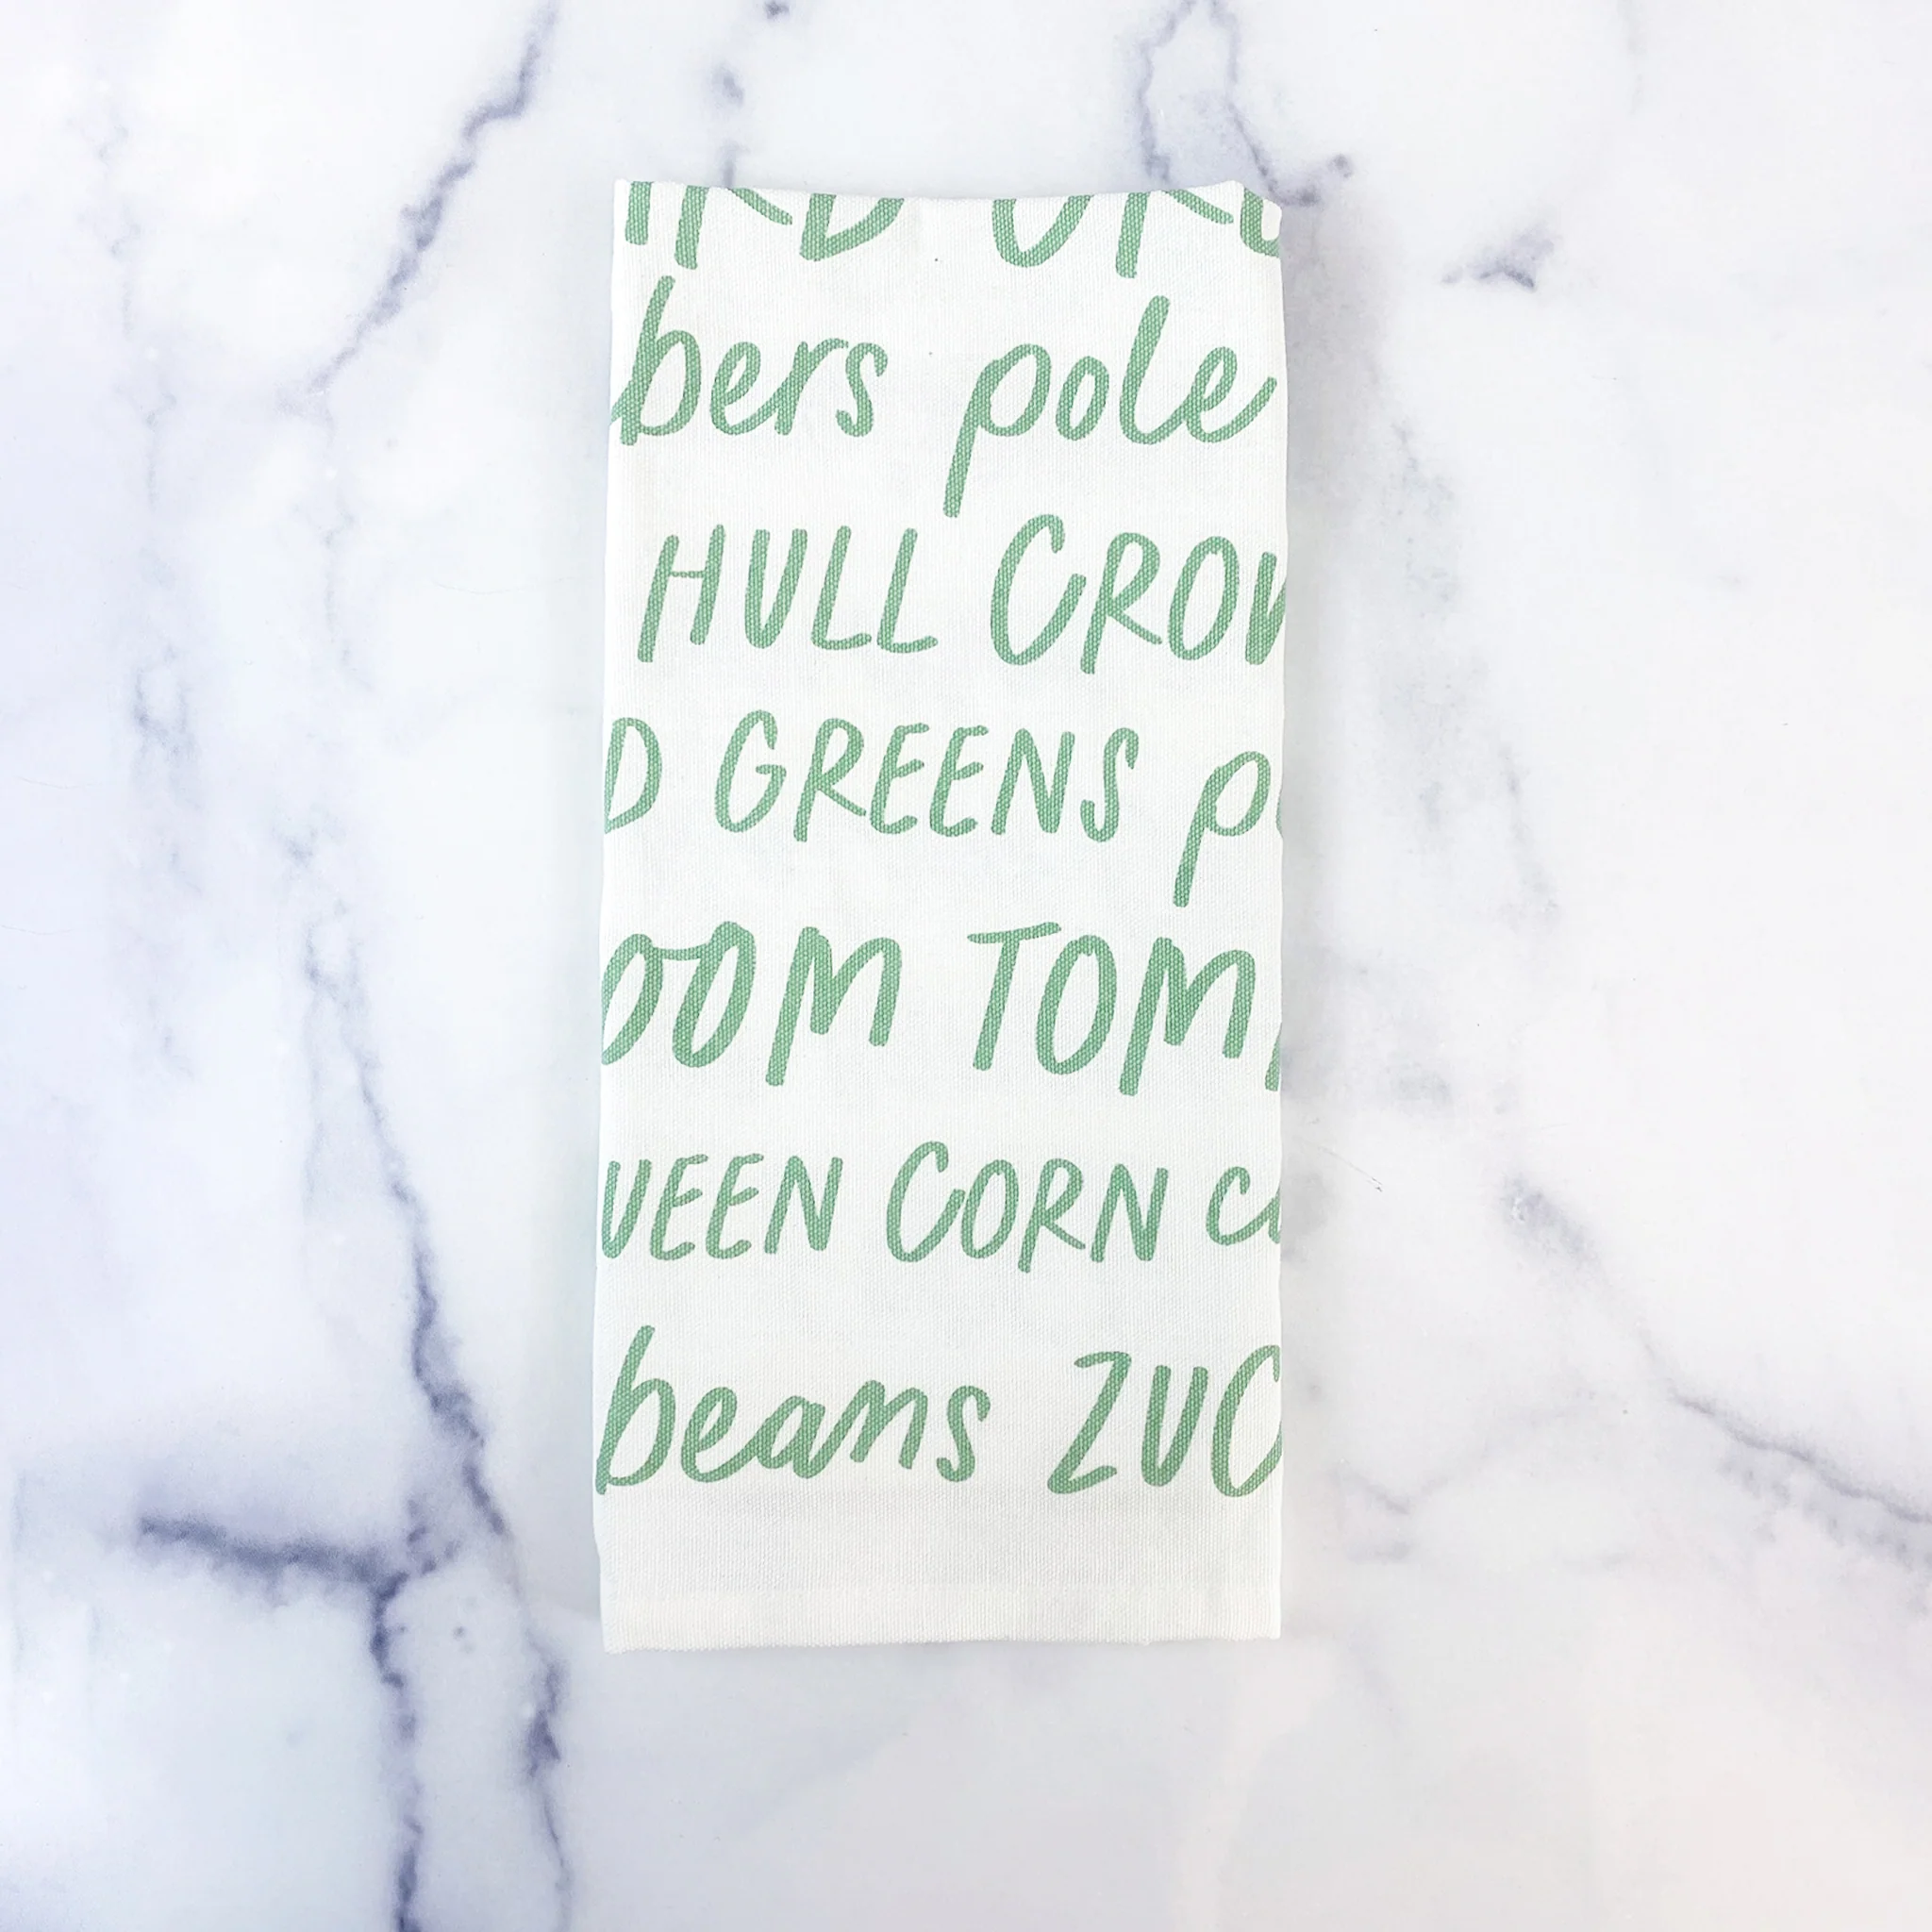 bers pole
HULL CROW
D GREENS p
OOM TOM
UEEN CORN cu
beans ZUC